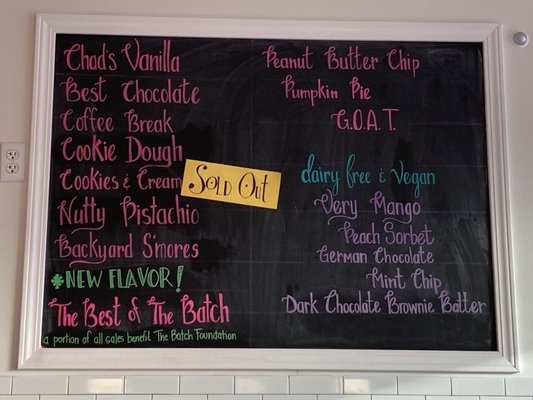 Chad's Vanilla
Best Chocolate
Coffee Break
Cookie Dough
Cookies & Cream
Sold Out
Nutty Pistachio
Backyard S'mores
*NEW FLAVOR!
The Best of The Batch
a portion of all sales benefit The Batch Foundation
Peanut Butter Chip
Pumpkin Pie
G.O.A.T.
dairy free & Vegan
Very Mango
Peach Sorbet
German Chocolate
Mint Chip
Dark Chocolate Brownie Batter